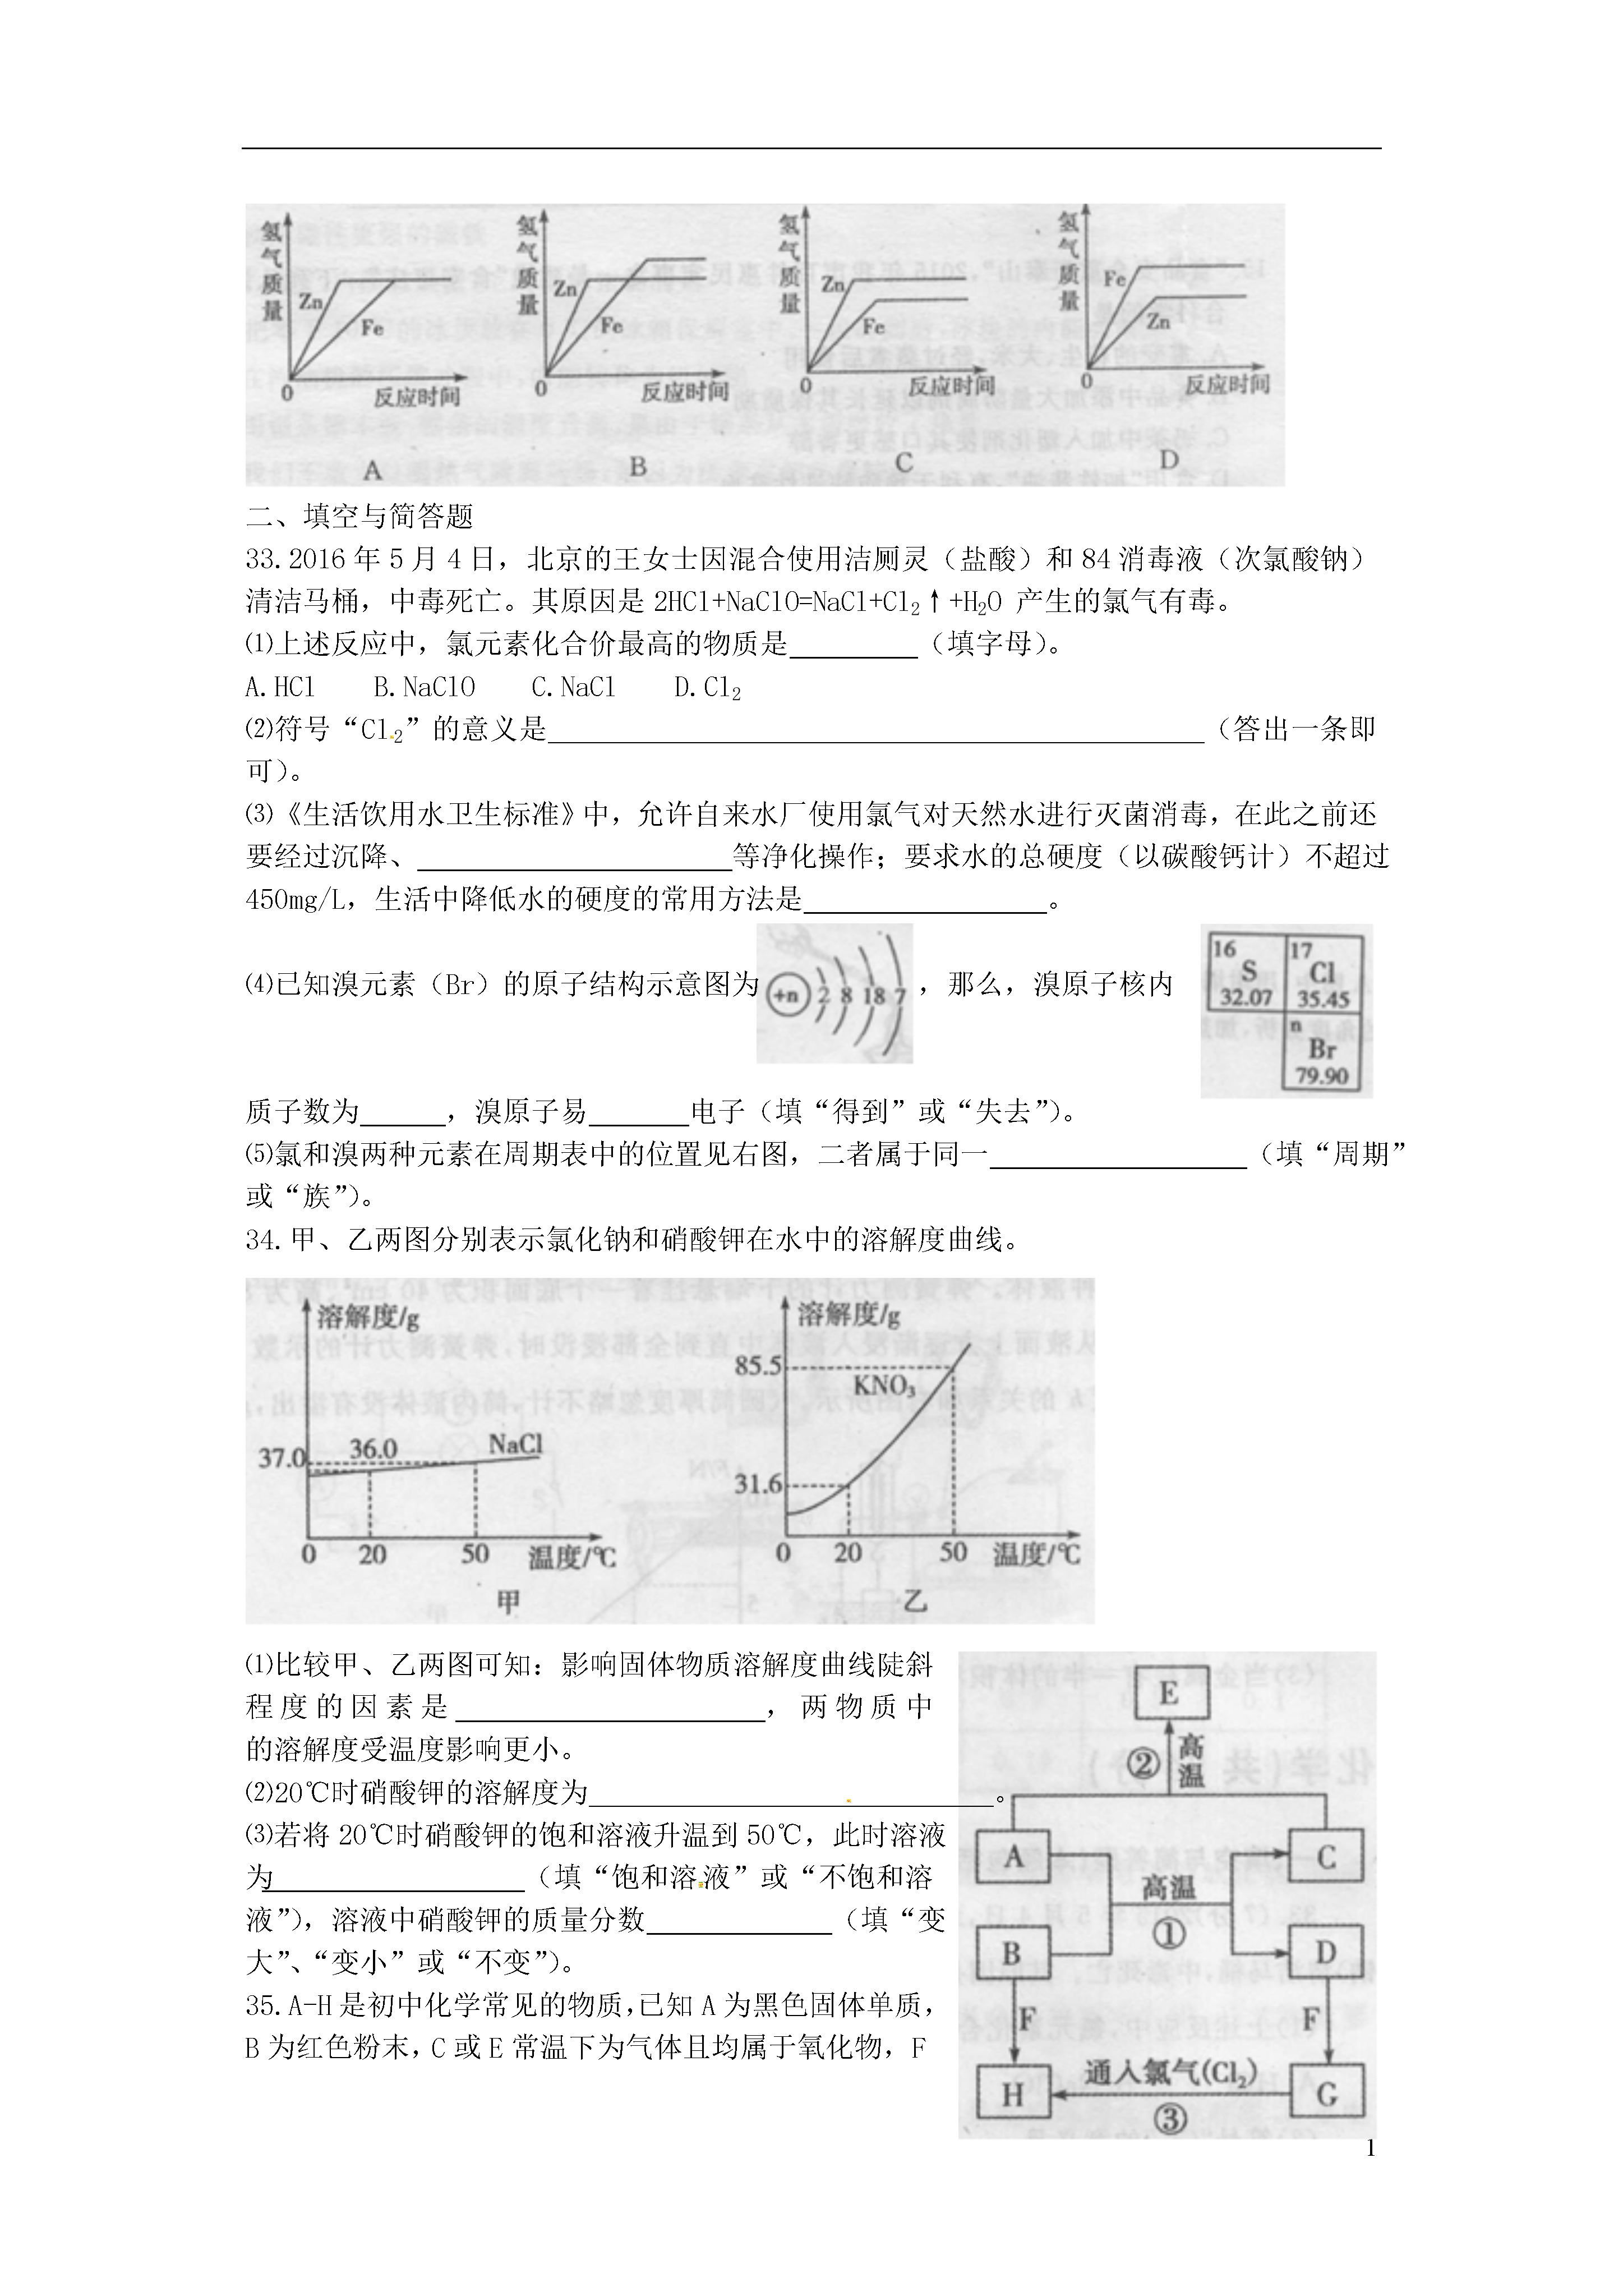 氢气质量
Zn
Fe
0
反应时间
A
氢气质量
Zn
Fe
0
反应时间
B
氢气质量
Zn
Fe
0
反应时间
C
氢气质量
Fe
Zn
0
反应时间
D
二、填空与简答题
33.2016年5月4日，北京的王女士因混合使用洁厕灵（盐酸）和84消毒液（次氯酸钠）
清洁马桶，中毒死亡。其原因是2HCl+NaClO=NaCl+Cl₂↑+H₂O 产生的氯气有毒。
⑴上述反应中，氯元素化合价最高的物质是_________（填字母）。
A.HCl    B.NaClO    C.NaCl    D.Cl₂
⑵符号“Cl₂”的意义是______________________________________________（答出一条即
可）。
⑶《生活饮用水卫生标准》中，允许自来水厂使用氯气对天然水进行灭菌消毒，在此之前还
要经过沉降、______________________等净化操作；要求水的总硬度（以碳酸钙计）不超过
450mg/L，生活中降低水的硬度的常用方法是_________________。
⑷已知溴元素（Br）的原子结构示意图为
+n 2 8 18 7
，那么，溴原子核内
16
S
32.07
17
Cl
35.45
n
Br
79.90
质子数为______，溴原子易_______电子（填“得到”或“失去”）。
⑸氯和溴两种元素在周期表中的位置见右图，二者属于同一__________________（填“周期”
或“族”）。
34.甲、乙两图分别表示氯化钠和硝酸钾在水中的溶解度曲线。
溶解度/g
37.0
36.0
NaCl
0 20 50 温度/℃
甲
溶解度/g
85.5
KNO₃
31.6
0 20 50 温度/℃
乙
⑴比较甲、乙两图可知：影响固体物质溶解度曲线陡斜
程度的因素是______________________，两物质中
的溶解度受温度影响更小。
⑵20℃时硝酸钾的溶解度为____________________________。
⑶若将20℃时硝酸钾的饱和溶液升温到50℃，此时溶液
为__________________（填“饱和溶液”或“不饱和溶
液”），溶液中硝酸钾的质量分数_____________（填“变
大”、“变小”或“不变”）。
35.A-H是初中化学常见的物质，已知A为黑色固体单质，
B为红色粉末，C或E常温下为气体且均属于氧化物，F
E
② 高温
A
C
高温
①
B
D
F
F
H
通入氯气(Cl₂)
③
G
1